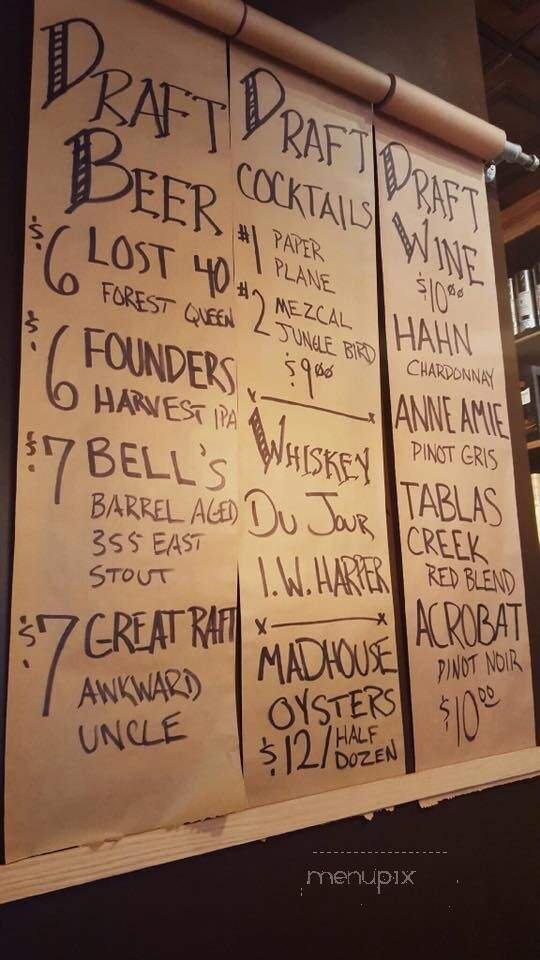 DRAFT
BEER
$6 LOST 40
FOREST QUEEN
$6 FOUNDERS
HARVEST IPA
$7 BELL'S
BARREL AGED
35S EAST
STOUT
$7 GREAT RAFT
AWKWARD
UNCLE
DRAFT
COCKTAILS
#1 PAPER
PLANE
#2 MEZCAL
JUNGLE BIRD
$9.00
WHISKEY
DU JOUR
I.W. HARPER
MADHOUSE
OYSTERS
$12/HALF
DOZEN
DRAFT
WINE
$10.00
HAHN
CHARDONNAY
ANNE AMIE
PINOT GRIS
TABLAS
CREEK
RED BLEND
ACROBAT
PINOT NOIR
$10.00
menupix